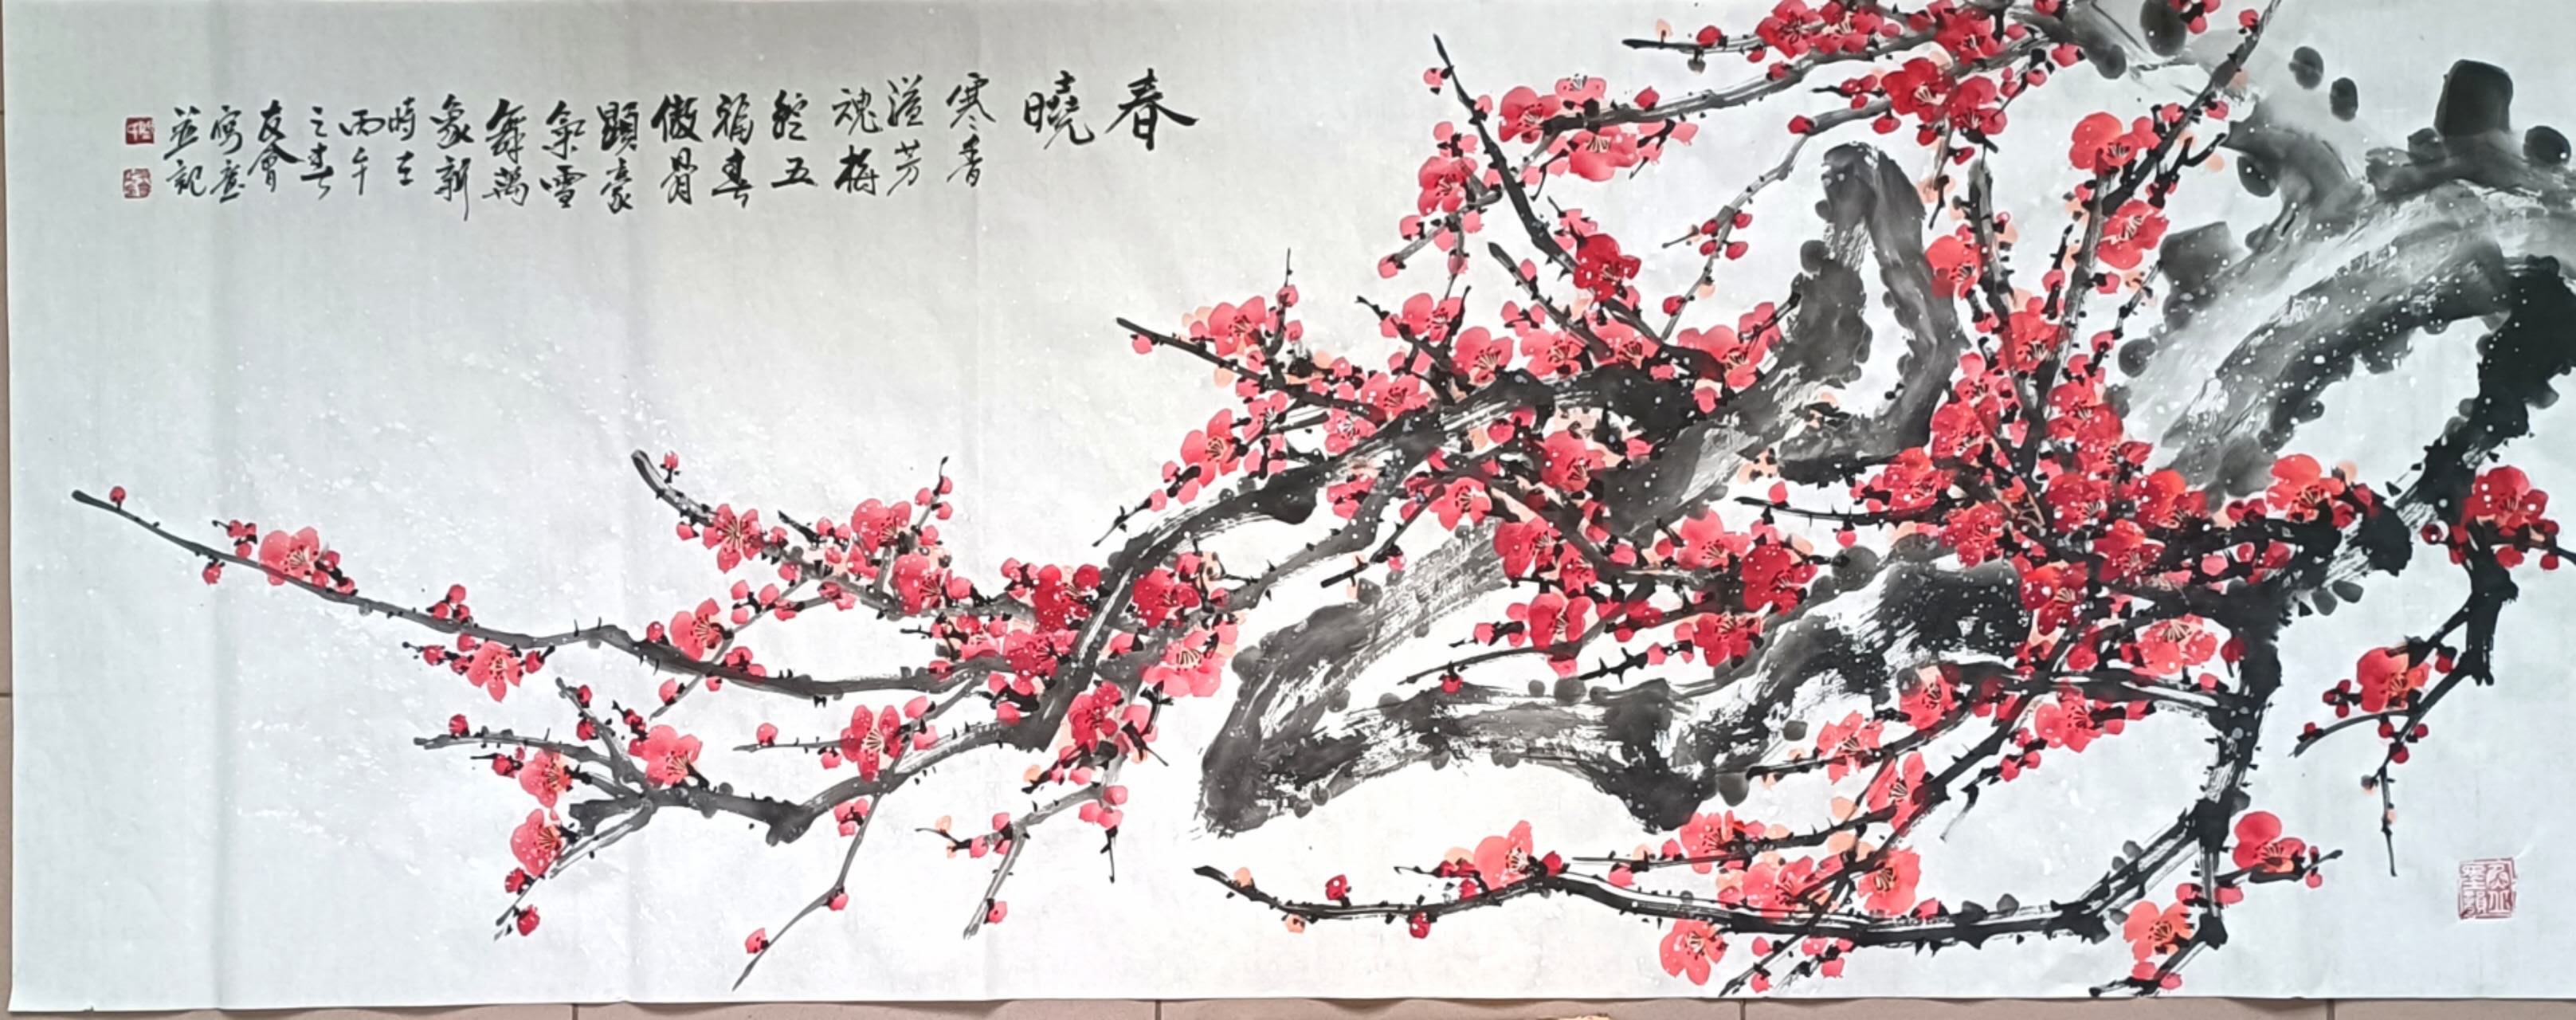 春
曉
寒香
溢芳
魂梅
綻五
福春
傲骨
顯豪
氣雪
舞萬
象新
時在
丙午
之春
友會
寫意
並記